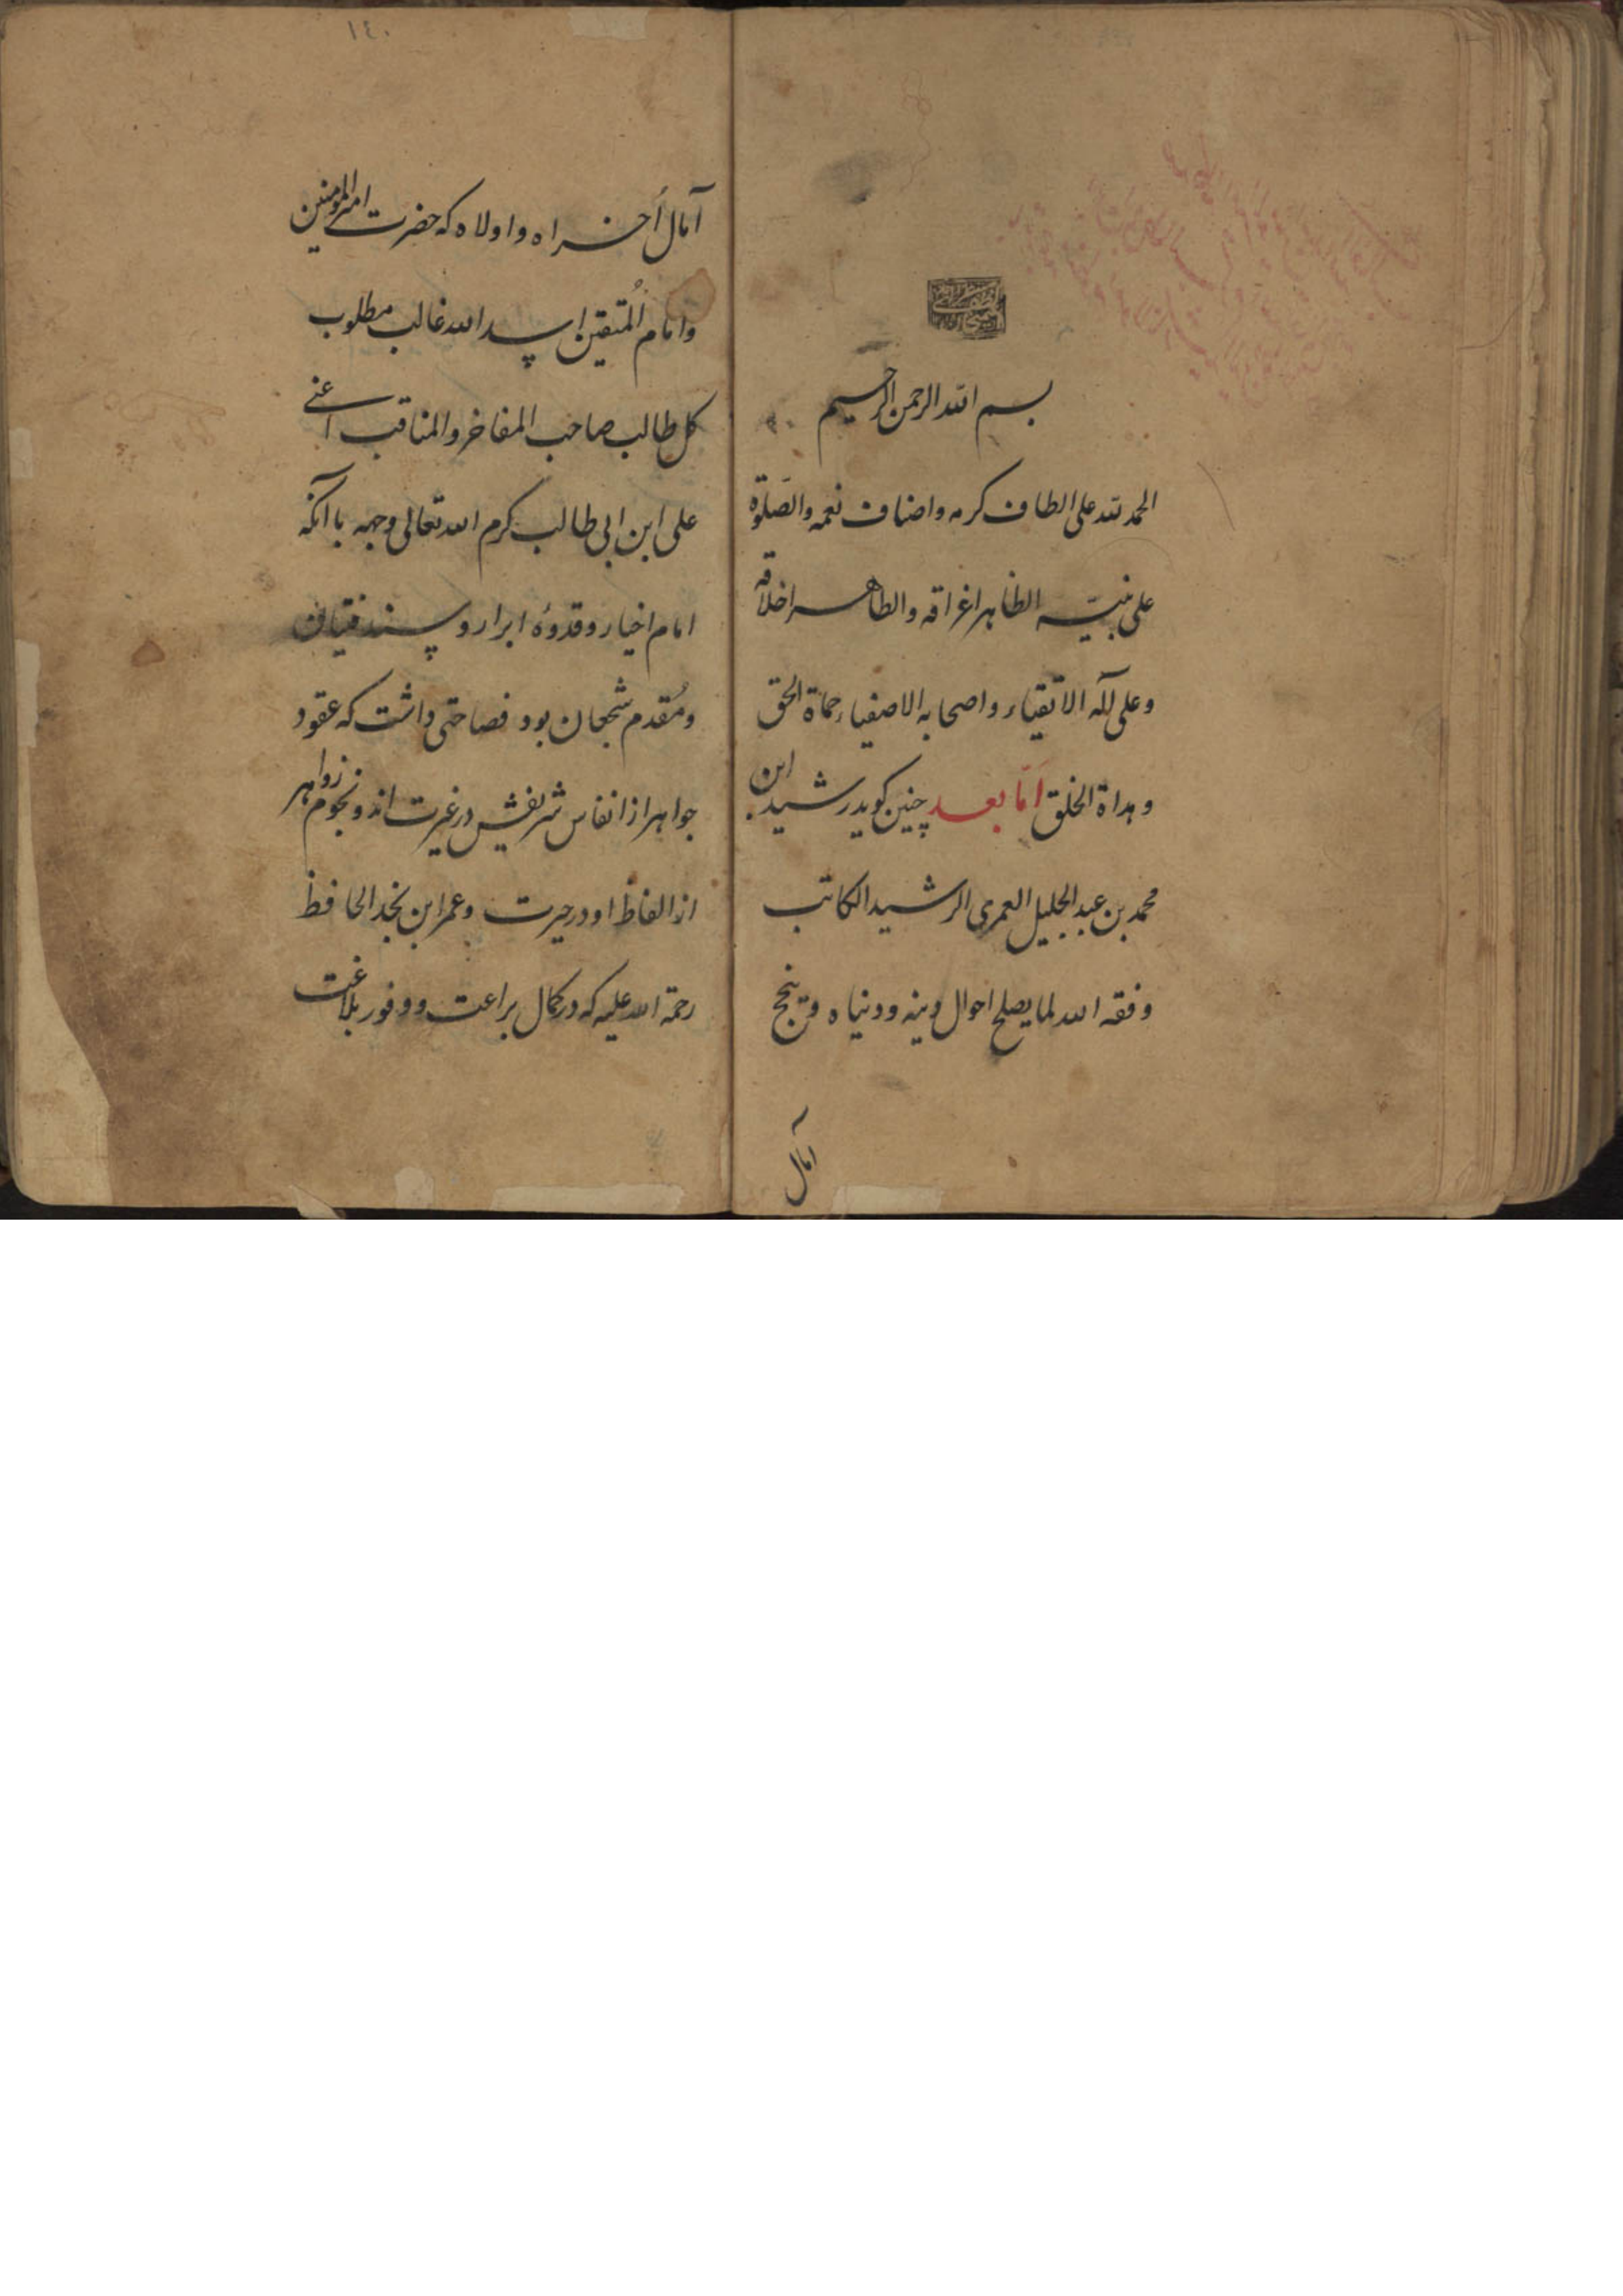 بسم الله الرحمن الرحيم
الحمد لله على الطاف كرمه واصناف نعمه والصلوة
على نبيه الظاهر اغراقه والطاهر اخلاقه
وعلى آله الاتقياء واصحابه الاصفياء حماة الحق
وهداة الخلق امّا بعد چنين كويد رشيد ابن
محمد بن عبد الجليل العمرى الرشيد الكاتب
وفقه الله لما يصلح احوال دينه ودنياه وينجح
آمال
١٤٠
آمال اُخراه واولاه كه حضرت امير المؤمنين
وامام المُتقين اسد الله غالب مطلوب
كل طالب صاحب المفاخر والمناقب اعنى
على ابن ابى طالب كرم الله تعالى وجهه با آنكه
امام اخيار وقدوۀ ابرار و سند فتيان
ومُقدم شجعان بود فصاحتى داشت كه عقود
جواهر از انفاس شريفش در غيرت اند ونجوم زواهر
از الفاظ او در حيرت وعمر ابن بحد الحافظ
رحمة الله عليه كه در كمال براعت ووفور بلاغت